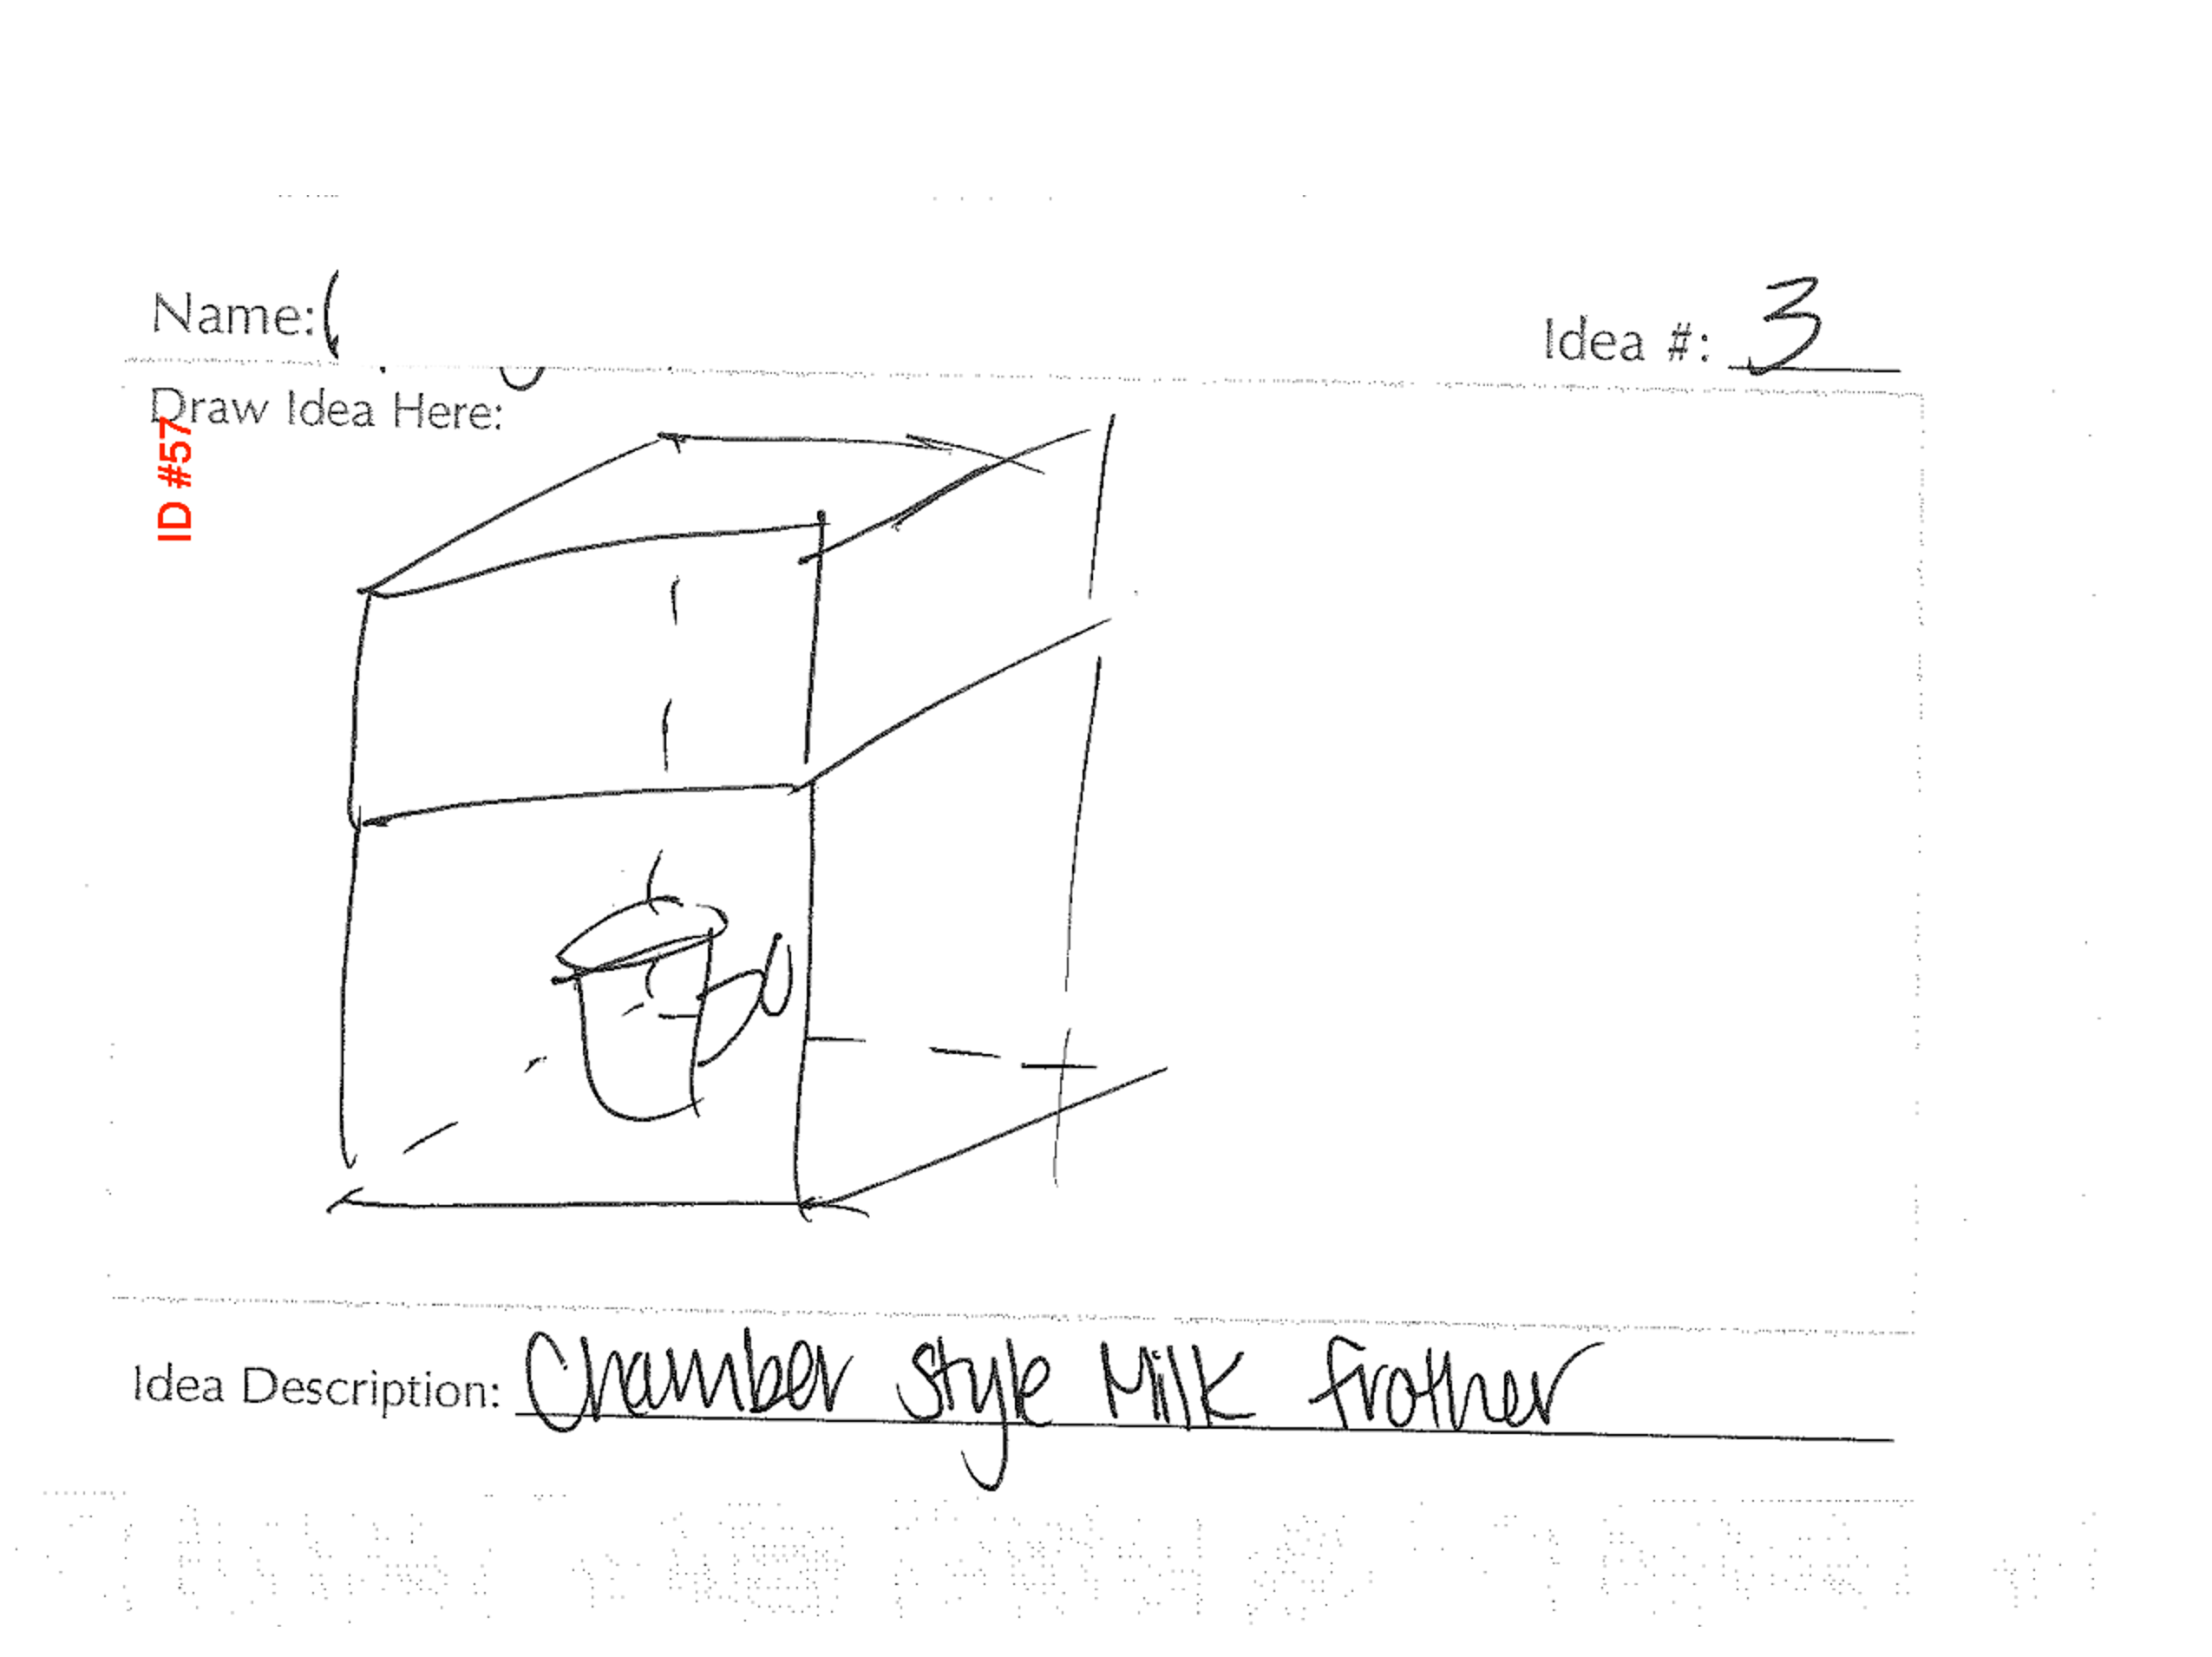 Name:
Idea #: 3
Draw Idea Here:
ID #57
Idea Description: Chamber Style Milk frother